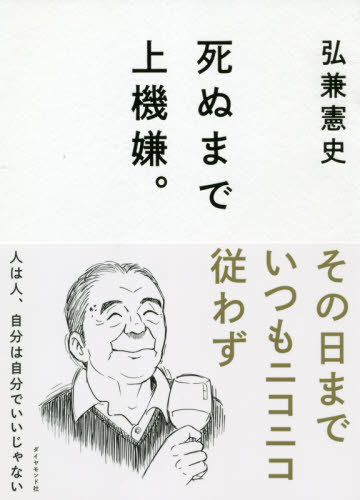 弘兼憲史
死ぬまで
上機嫌。
その日まで
いつもニコニコ
従わず
人は人、自分は自分でいいじゃない
ダイヤモンド社